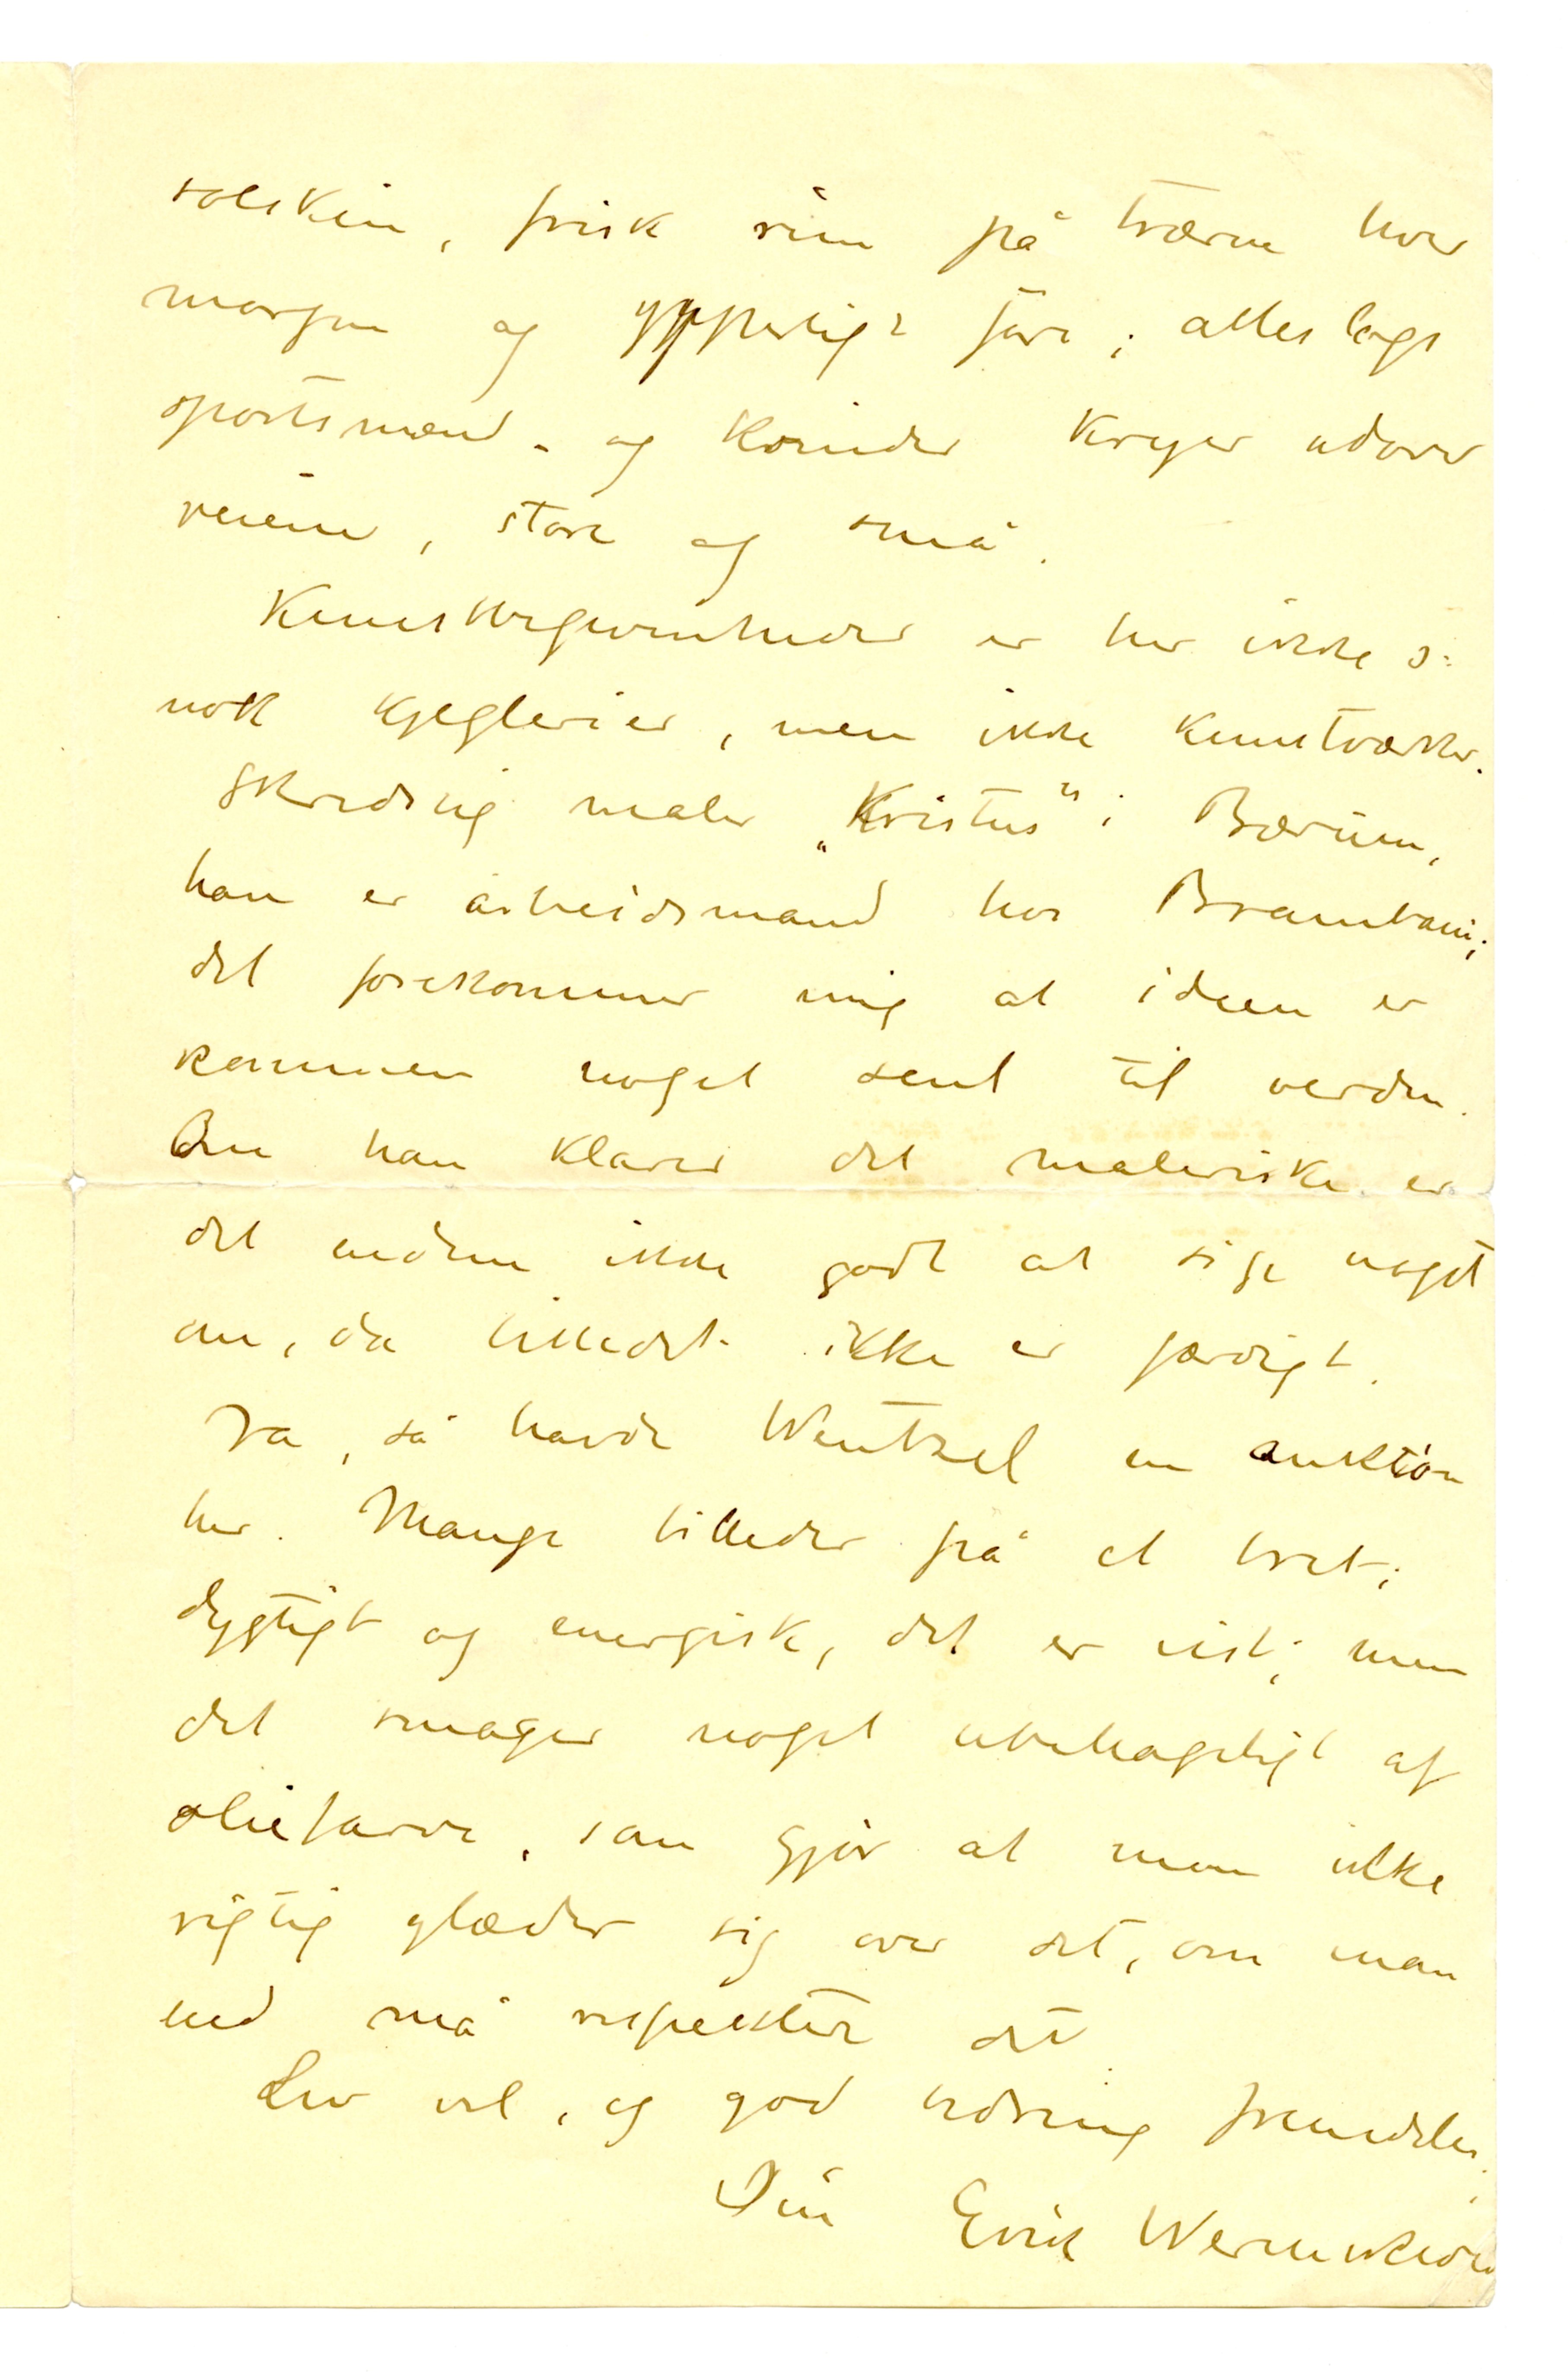 solskin, frisk rim på trærne hver
morgen og ypperligt føre; alleslags
sportsmænd - og kvinder kryer udover
veiene, store og små.
Kunstbegivenheder er her ikke ɔ:
nok kjeglerier, men ikke kunstværker.
Skredsvig maler „Kristus" i Bærum,
han er arbeidsmand hos Brambani;
det forekommer mig at ideen er
kommen noget sent til verden.
Om han klarer det maleriske er
det endnu ikke godt at sige noget
om, da billedet ikke er færdigt.
Ja, så havde Wentzel en auktion
her. Mange billeder på et bret;
dygtigt og energisk, det er vist; men
det smager noget ubehageligt af
oliefarve, som gjør at man ikke
rigtig glæder sig over det, om man
end må respektere det.
Lev vel, og god bedring fremdeles.
Din Erik Werenskiold